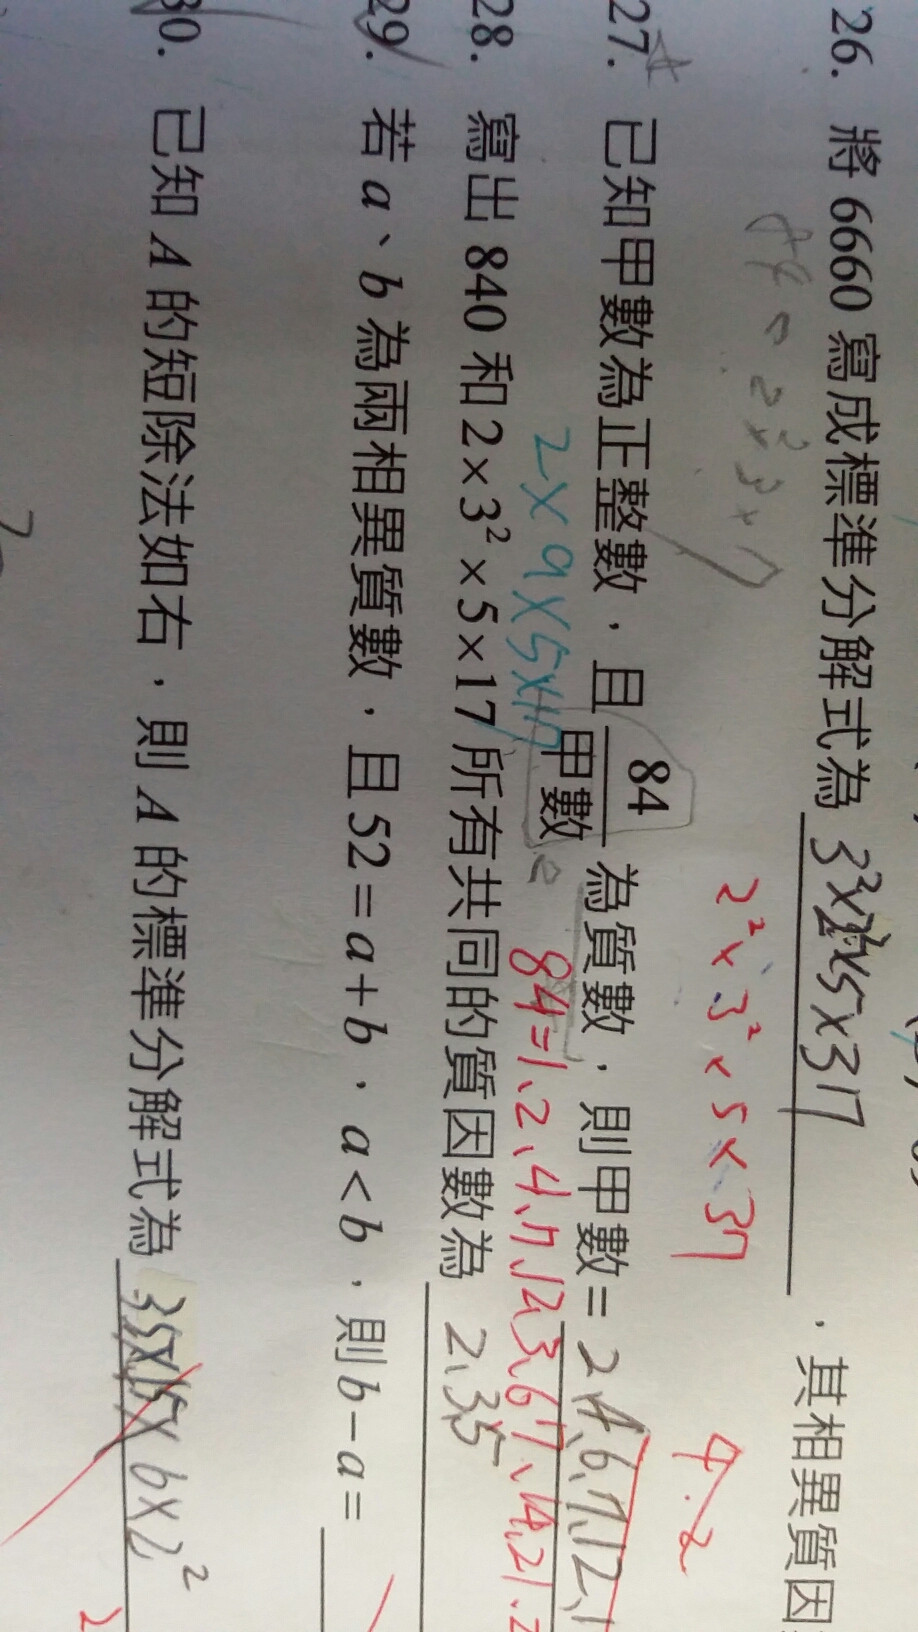 26. 將 6660 寫成標準分解式為 3²×2²×5×37 , 其相異質因
2²×3²×5×37
84=2²×3×7
27. 已知甲數為正整數, 且 84/甲數 為質數, 則甲數=
2×9×5×17
84=1、2、4、7、12、3、6
28. 寫出 840 和 2×3²×5×17 所有共同的質因數為 2、3、5
29. 若 a、b 為兩相異質數, 且 52=a+b, a<b, 則 b-a=
30. 已知 A 的短除法如右, 則 A 的標準分解式為 35×15×6×2²